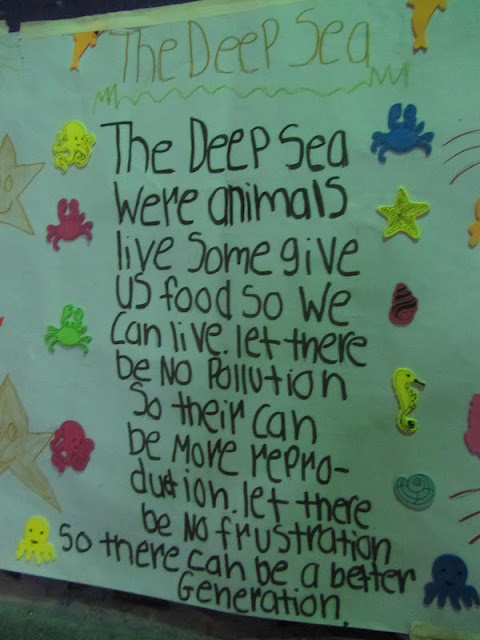 The Deep Sea
The Deep Sea
Were animals
live some give
us food so we
can live. let there
be No Pollution
So their can
be More repro-
duction. let there
be No frustration
so there can be a better
Generation.